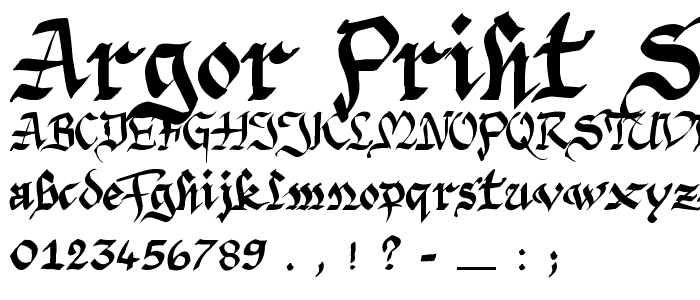 Argor Priht S
ABCDEFGHIJKLMNOPQRSTUV
abcdefghijklmnopqrstuvwxyz
0123456789 . , ! ? - _ : ;